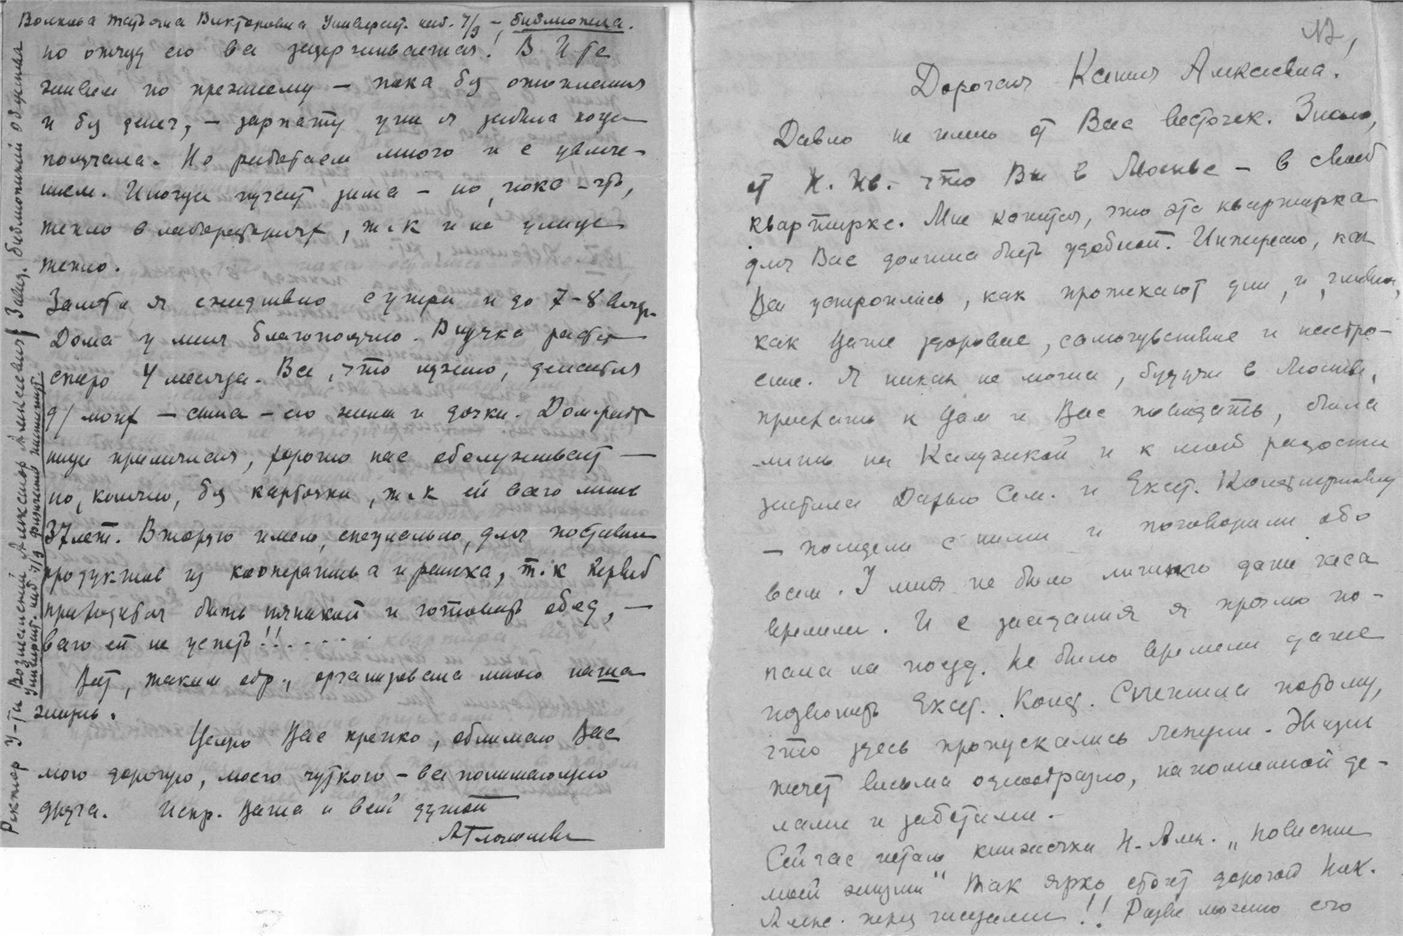 Волкова Татьяна Викторовна Университ. наб. 7/9 –, библиотека.
но отчуд его все задерживается. В И-те
живем по прежнему – пока без отопления
и без денег, – зарплату уже я забыла когда
получала. Но работаем много и с увлече-
нием. Иногда пугает зима – но, пока – что,
тепло в лабораториях, т.к и на улице
тепло.
Занята я ежедневно с утра и до 7-8 вечер.
Дома у меня благополучно. Внучке
скоро 4 месяца. Все, что нужно, делается
д/ моих – сына – его жены и дочки. Дом.
ница приличная, хорошо нас обслуживает —
но, конечно, без карточки, т.к ей всего лишь
37 лет. Вторую имею, специально, для поставки
продуктов из кооператива и рынка, т.к первой
приходится быть нянькой и готовить обед, —
всего ей не успеть!! .....
Вот, таким обр., организована мною наша
жизнь.
Целую Вас крепко, обнимаю Вас
мою дорогую, моего чуткого – все понимающего
друга. Искр. Ваша и всей душой
Ректор У-та Вознесенский Александр Алексеевич
Университ. наб. 7/9 Физический институт.
Завед. библиотекой
N2,
Дорогая Ксения Алексеевна!
Давно не имею от Вас весточек. Знаю,
от Н. Ив. – что Вы в Москве – в своей
квартирке. Мне кажется, что эта квартирка
для Вас должна быть удобной. Интересно, как
Вы устроились, как протекают дни, и, главное,
как Ваше здоровье, самочувствие и настро-
ение. Я никак не могла, будучи в Москве,
приехать к Вам и Вас повидать, была
лишь на Калужской и к моей радости
застала Дарью Сем. и Екат. Константиновну
– посидели с ними и поговорили обо
всем. У меня не было лишнего даже часа
времени. И с заседания я прямо по-
пала на поезд. Не было времени даже
позвонить Екат. Конст. Спешила потому,
что здесь пропускались лекции. Жизнь
течет весьма однообразно, наполненной де-
лами и заботами.
Сейчас читаю книжечки Н. Алек. „Повести
моей жизни“ Так ярко стоит дорогой Ник.
Алек. перед глазами!! Разве можно его